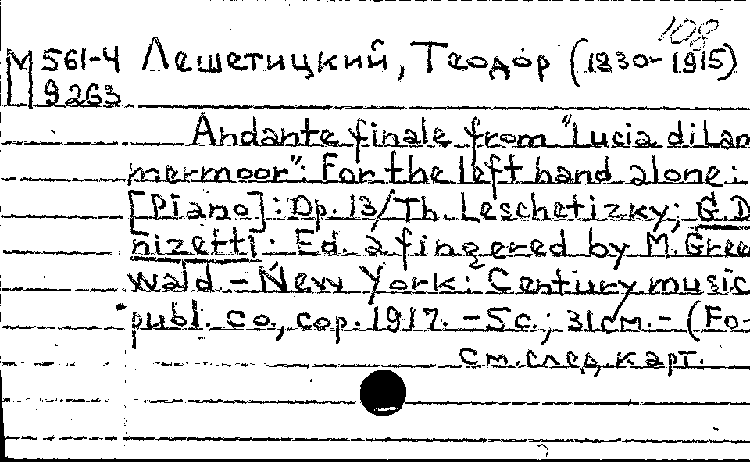 108
М 561-4 Лешетицкий, Теодор (1830-1915)
9263
Andante finale from "Lucia di Lam
mermoor": For the left hand alone:
[Piano]: Op. 13/Th. Leschetizky; G.D
nizetti. Ed. a fingered by M. Gree
wald – New York: Century music
publ. co., cop. 1917. – 5с.; 31см. – (Fo-
см. след. карт.